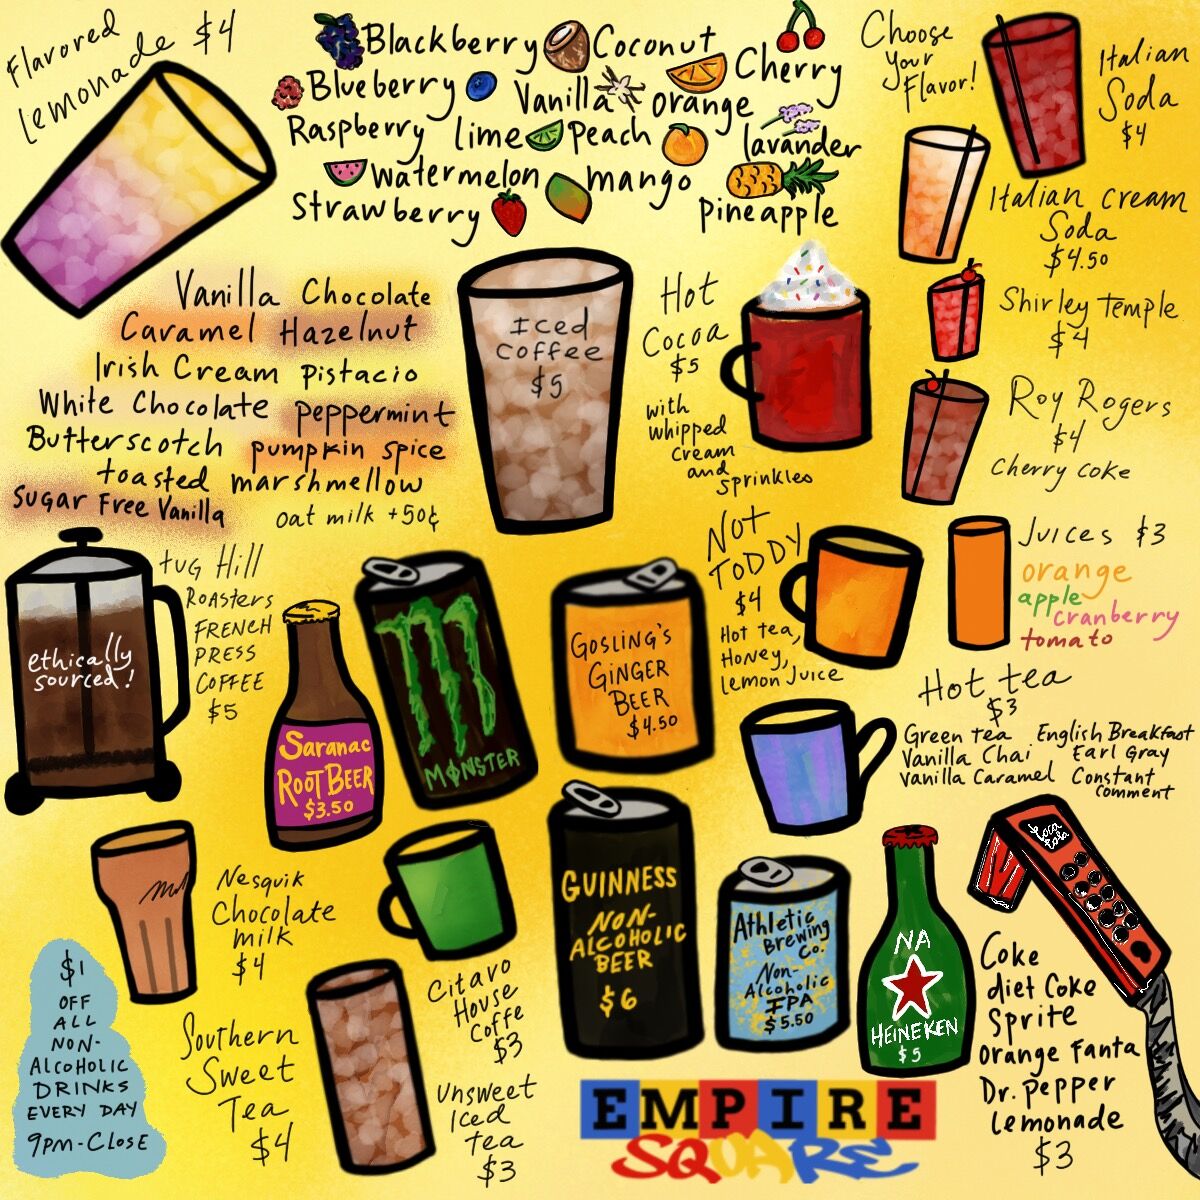 Flavored
Lemonade $4
Blackberry Coconut
Cherry
Blueberry Vanilla orange
Raspberry lime peach lavander
watermelon mango
Strawberry pineapple
Choose
your
Flavor!
Italian
Soda
$4
Italian cream
Soda
$4.50
Shirley Temple
$4
Roy Rogers
$4
Cherry coke
Vanilla Chocolate
Caramel Hazelnut
Irish Cream pistacio
White Chocolate peppermint
Butterscotch pumpkin spice
toasted marshmellow
Sugar Free Vanilla
oat milk +50¢
Iced
coffee
$5
Hot
Cocoa
$5
with
whipped
cream
and
sprinkles
tug Hill
Roasters
French
press
coffee
$5
ethically
sourced!
Saranac
Root Beer
$3.50
MONSTER
Gosling's
Ginger
Beer
$4.50
Not
Toddy
$4
Hot tea,
Honey,
lemon Juice
Juices $3
orange
apple
cranberry
tomato
Hot tea
$3
Green tea English Breakfast
Vanilla Chai Earl Gray
Vanilla Caramel Constant
comment
Nesquik
Chocolate
milk
$4
Citavo
House
Coffe
$3
GUINNESS
NON-
ALCOHOLIC
BEER
$6
Athletic
Brewing
Co.
Non-
Alcoholic
IPA
$5.50
NA
HEINEKEN
$5
Coca
Cola
Coke
diet Coke
Sprite
Orange Fanta
Dr. pepper
Lemonade
$3
$1
OFF
ALL
NON-
ALCOHOLIC
DRINKS
EVERY DAY
9PM-CLOSE
Southern
Sweet
Tea
$4
Unsweet
Iced
tea
$3
EMPIRE
SQUARE